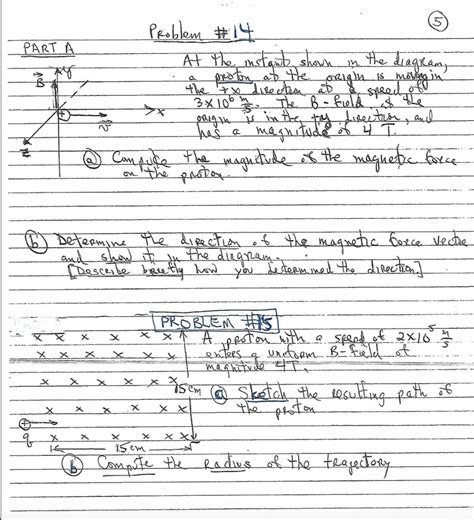 5
Problem #14
PART A
At the instant shown in the diagram,
a proton at the origin is moving in
the +x direction at a speed of
3×10⁶ m/s. The B-field at the
origin is in the +y direction, and
has a magnitude of 4 T.
B
y
x
+
v
z
(a) Compute the magnitude of the magnetic force
on the proton.
(b) Determine the direction of the magnetic force vector
and show it in the diagram.
[Describe briefly how you determined the direction]
PROBLEM #15
x x x x x x
A proton with a speed of 2×10⁵ m/s
x x x x x x
enters a uniform B-field of
magnitude 4T.
x x x x x x
15cm
(a) Sketch the resulting path of
x x x x x x
the proton
+
q x x x x x x
15cm
(b) Compute the radius of the trajectory